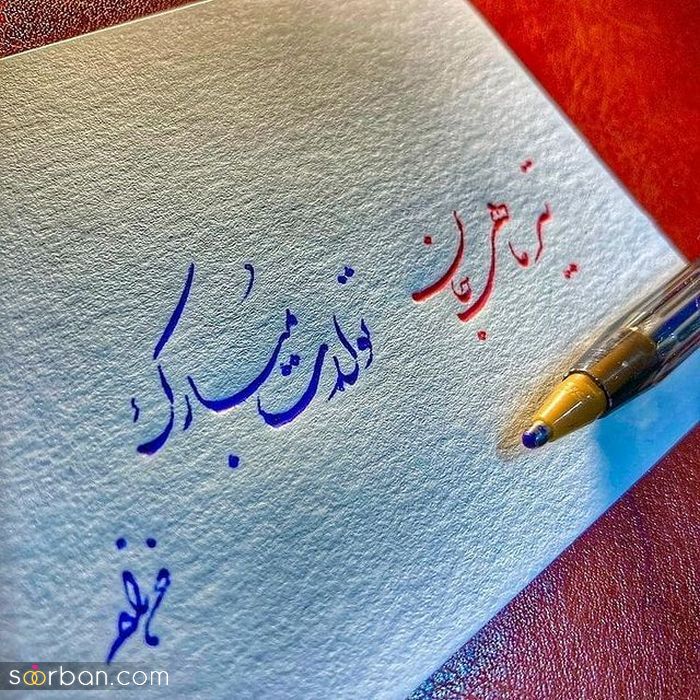 تیرماهی جان
تولدت مبارک
soorban.com